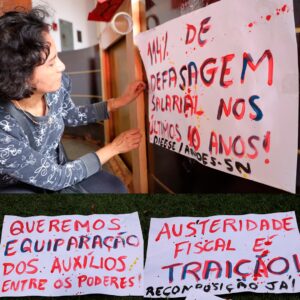 144% DE
DEFASAGEM
SALARIAL NOS
ÚLTIMOS 10 ANOS!
DIEESE/ANDES-SN
QUEREMOS
EQUIPARAÇÃO
DOS AUXÍLIOS
ENTRE OS PODERES!
AUSTERIDADE
FISCAL É
TRAIÇÃO!
RECOMPOSIÇÃO JÁ!